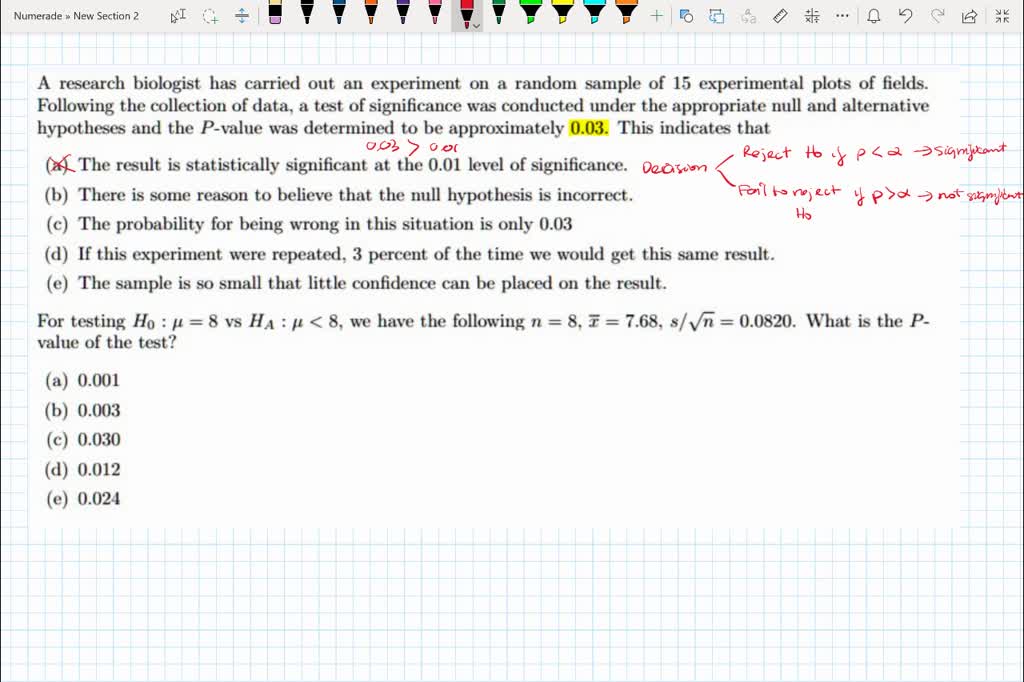 Numerade » New Section 2
A research biologist has carried out an experiment on a random sample of 15 experimental plots of fields.
Following the collection of data, a test of significance was conducted under the appropriate null and alternative
hypotheses and the P-value was determined to be approximately 0.03. This indicates that
0.03 > 0.01
(a) The result is statistically significant at the 0.01 level of significance.
Decision
Reject Ho if p < α → significant
Fail to reject Ho if p > α → not significant
(b) There is some reason to believe that the null hypothesis is incorrect.
(c) The probability for being wrong in this situation is only 0.03
(d) If this experiment were repeated, 3 percent of the time we would get this same result.
(e) The sample is so small that little confidence can be placed on the result.
For testing H₀ : μ = 8 vs H_A : μ < 8, we have the following n = 8, x̅ = 7.68, s/√n = 0.0820. What is the P-
value of the test?
(a) 0.001
(b) 0.003
(c) 0.030
(d) 0.012
(e) 0.024